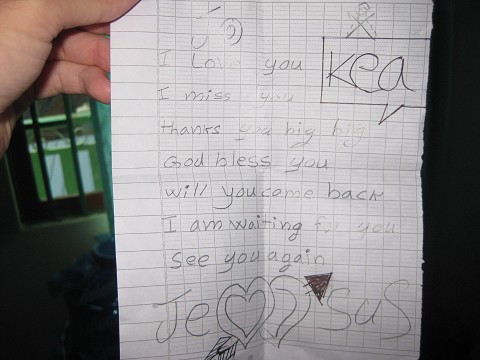 I Love you
kea
I miss you
thanks you big big
God bless you
will you come back
I am waiting for you
see you again
Je sus